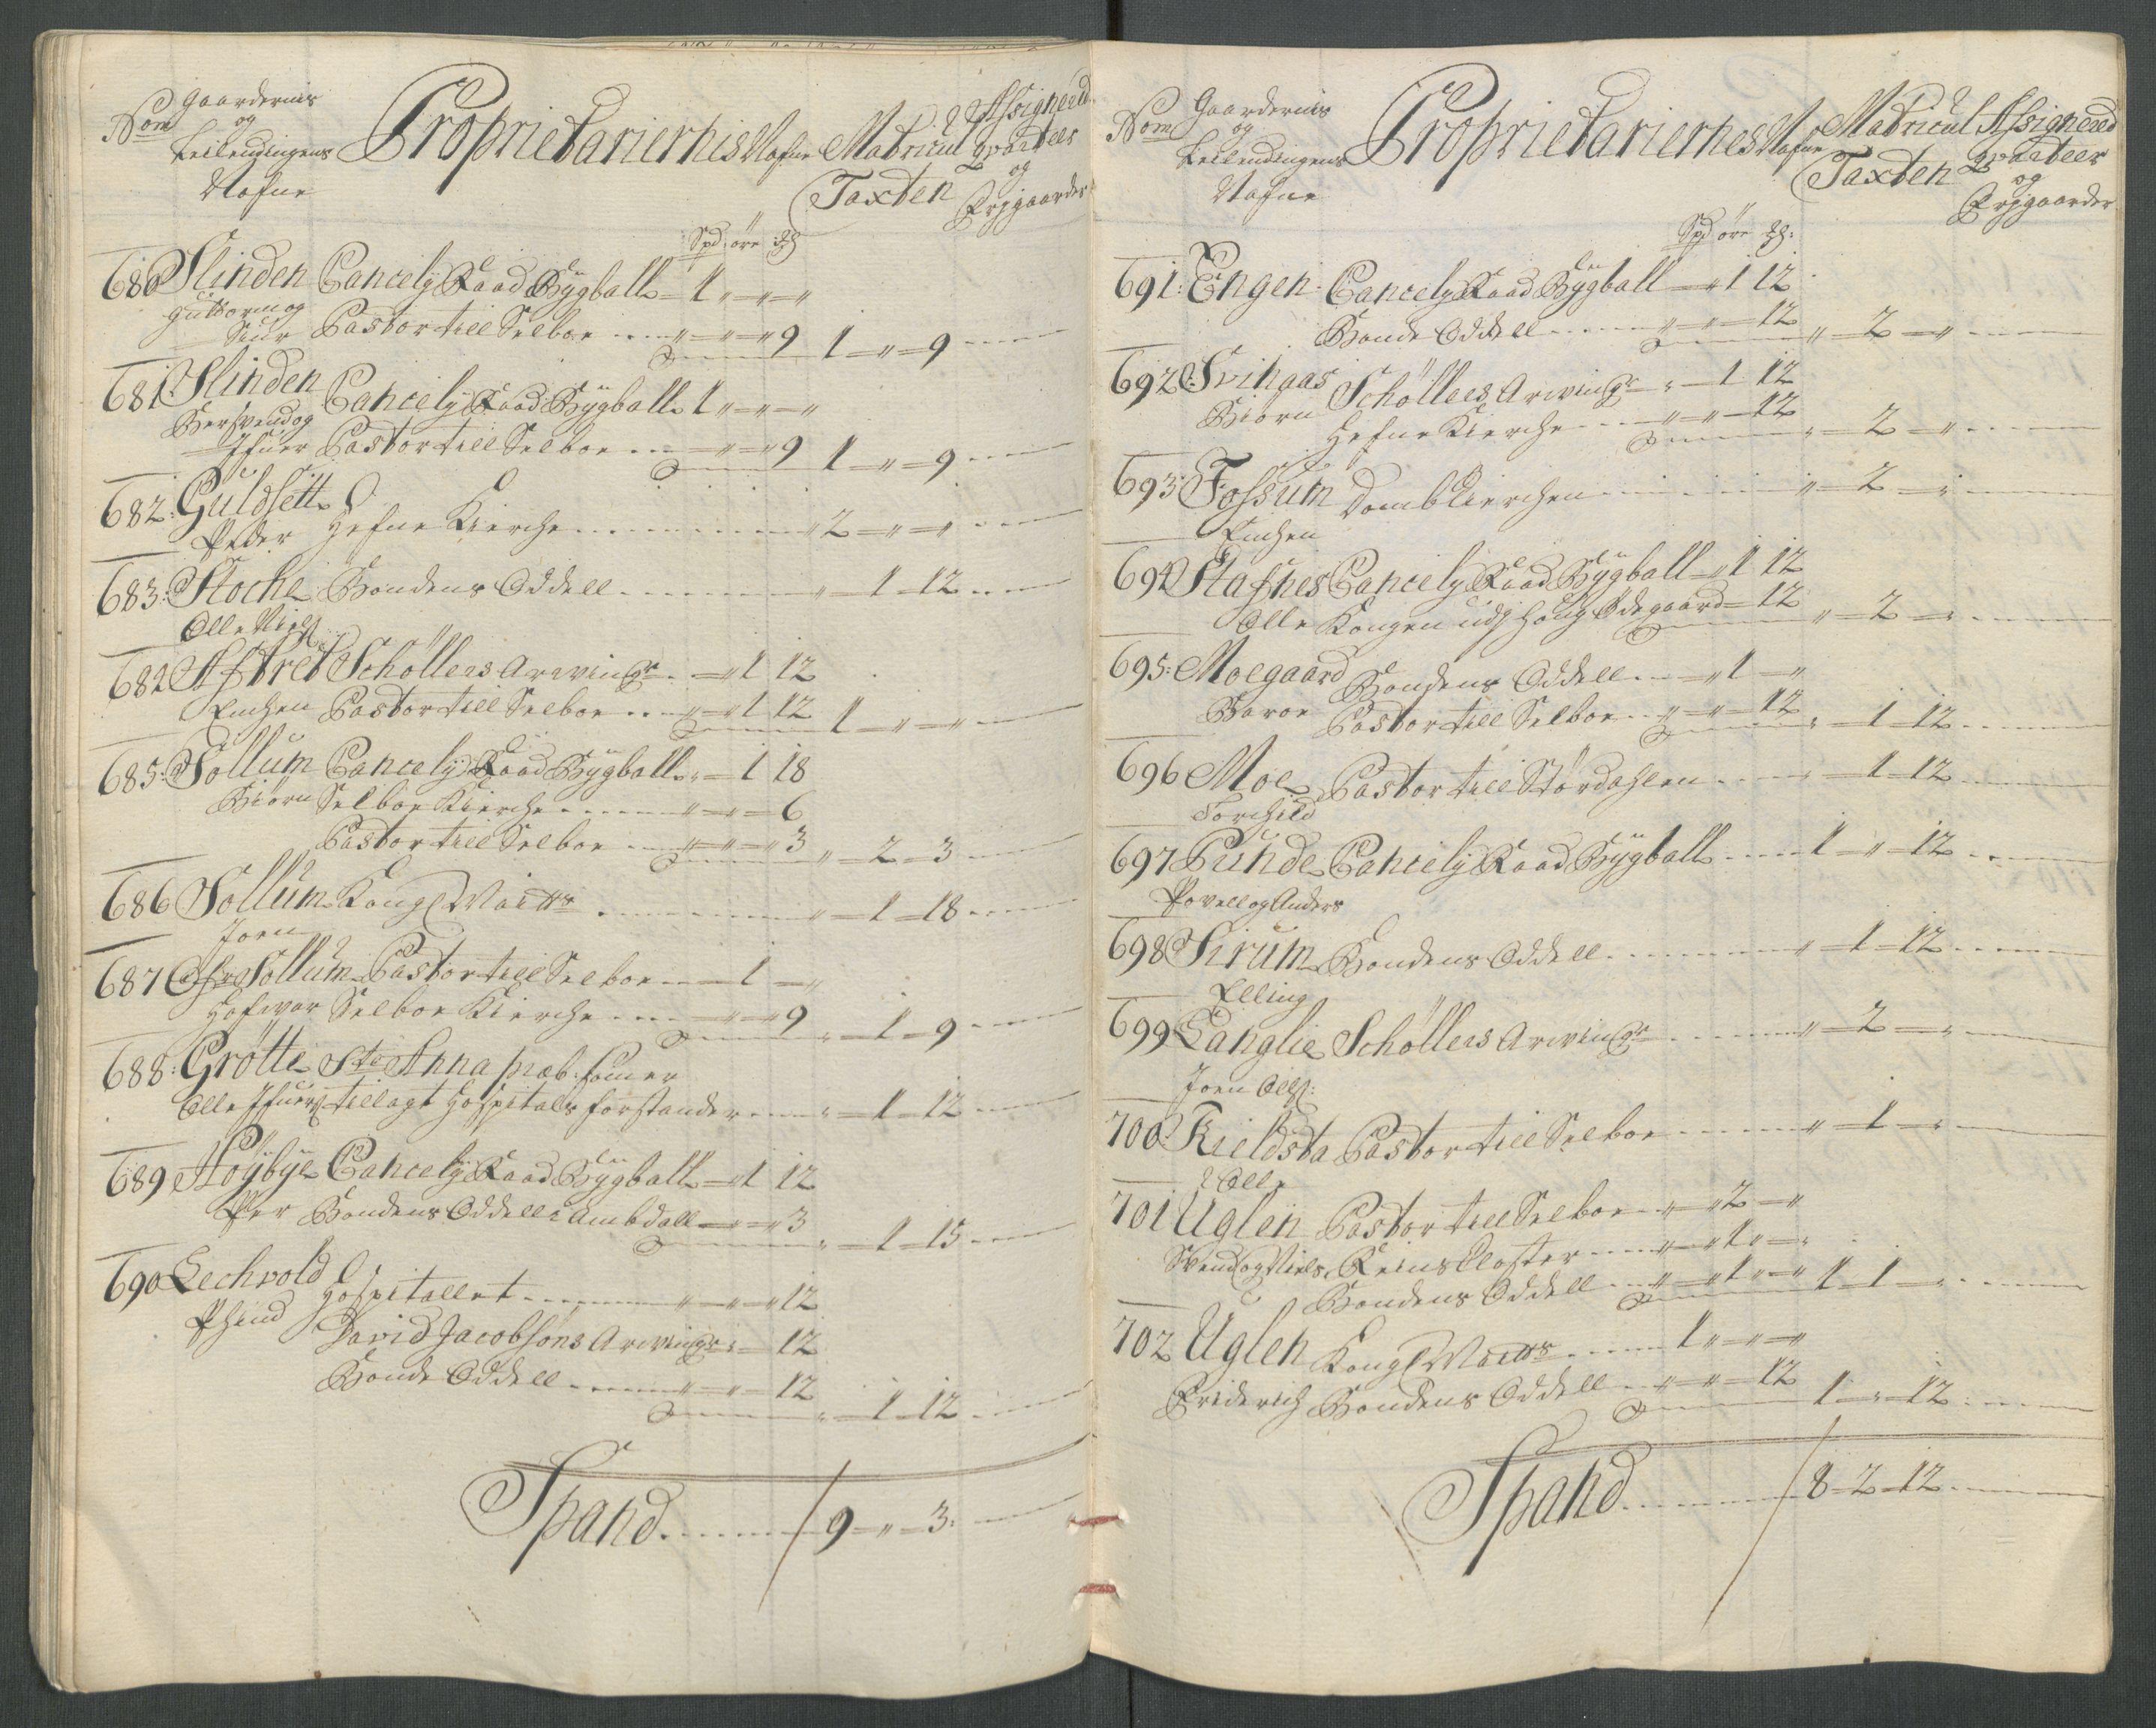 Nom Gaardernis og Leilendingens Nafne Proprietarierhis Nafne Matricul Taxten Assignered qvarteer og Frjgaarder
Spd öre #
680 Slinden Cancelj Raad Bÿgball 1 " "
Guttorm og Siur Pastor till Selboe " " 9 1 " 9
681: Slinden Cancelj Raad Bÿgball 1 " "
Bersvend og Ifuer Pastor till Selboe " " 9 1 " 9
682: Guldsett
Peder Hefne Kierche " 2 " "
683: Stoche Bondens Oddell " 1 12
Olle Nielß
682 Afstret Schöllers Arvinger " 1 12
Enchen Pastor till Selboe " 1 12 1 " "
685: Sollum Cancelj Raad Bÿgball " 1 18
Biörn Selboe Kierche " " 6
Pastor till Selboe " " 3 " 2 3
686 Sollum Kongl Maitts " 1 18
Joen
687 Ofre Sollum Pastor till Selboe 1 "
Hafwar Selboe Kierche " " 9 " 1 9
688: Grötte Ste Anna præb: som er
Olle Ifuerß tillagt Hospitals forstander " 1 12
689 Höÿbÿe Cancelj Raad Bÿgball " 1 12
Per Bondens Oddell i Ambdall " " 3 " 1 15
690 Lechvold Hospitallet " " 12
David Jacobsöns Arvinger " 12
Bonde Oddell " " 12 " 1 12
Spand 9 " 3:
Nom Gaardernis og Leilendingens Nafne Proprietarierhes Nafne Matricul Taxten Assignered qvarteer og Frjgaarder
Spd öre #:
691: Engen Cancelj Raad Bÿgball " 1 12
Bonde Oddell " " 12 " 2 "
692: Svinaas Schöllers Arvinger " 1 12
Biörn Hefne Kierche " " 12 " 2 "
693: Fossum Domb Kierchen " 2 "
Enchen
694 Stafnes Cancelj Raad Bÿgball " 1 12
Olle Kongen udj Houg Ödegaard 12 " 2 "
695: Moegaard Bondens Oddell " 1 "
Baroe Pastor till Selboe " " 12 " 1 12
696 Moe Pastor till Stördahlen " 1 12
Torchild
697 Punde Cancelj Raad Bÿgball 1 " 12
Povell og Anders
698 Sirum Bondens Oddell " 1 12
Elling
699 Langlie Schöllers Arvinger " 2 "
Joen Olß:
700: Kieldsta Pastor till Selboe " 1 "
Olle
701 Uglen Pastor till Selboe " 2 "
Svend og Niels Reins Closter " 1 "
Bondens Oddell " 1 " 1 1 "
702 Uglen Kongl Maitts 1 " "
Friderich Bondens Oddell " " 12 1 " 12
Spand 8 2 12